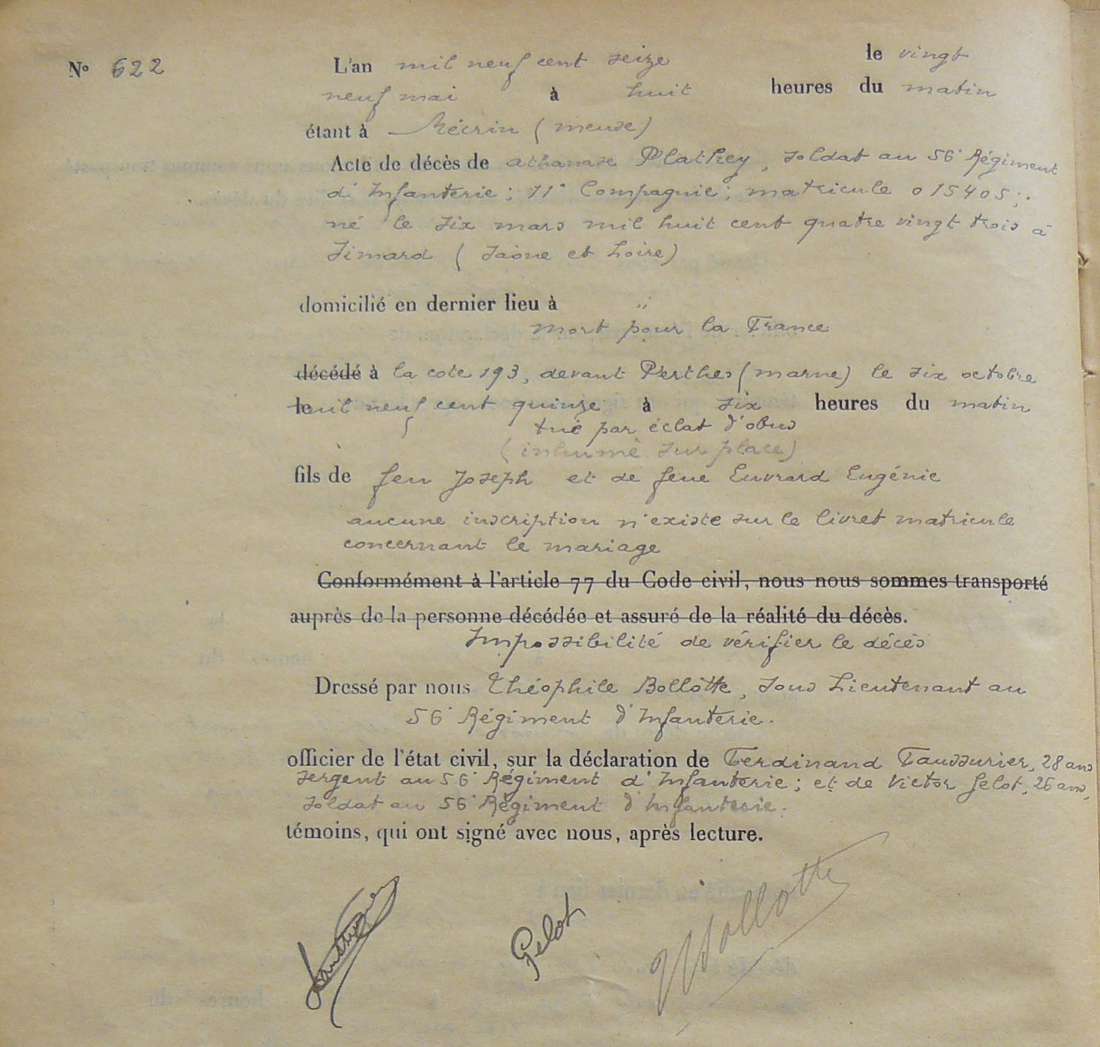 N° 622
L'an mil neuf cent seize le vingt
neuf mai à huit heures du matin
étant à Mécrin (meuse)
Acte de décès de athanase Plathey, soldat au 56e Régiment
d'Infanterie; 11e Compagnie; matricule 015405;
né le six mars mil huit cent quatre vingt trois à
Simard (Saône et Loire)
domicilié en dernier lieu à "
mort pour la France
décédé à la cote 193, devant Perthes (marne) le six octobre
le mil neuf cent quinze à six heures du matin
tué par éclat d'obus
(inhumé sur place)
fils de feu Joseph et de feue Euvrard Eugénie
aucune inscription n'existe sur le livret matricule
concernant le mariage
Conformément à l'article 77 du Code civil, nous nous sommes transporté
auprès de la personne décédée et assuré de la réalité du décès.
Impossibilité de vérifier le décès
Dressé par nous Théophile Bollotte, Sous Lieutenant au
56e Régiment d'Infanterie.
officier de l'état civil, sur la déclaration de Ferdinand Taussurier, 28 ans
sergent au 56e Régiment d'Infanterie; et de Victor Gelot, 26 ans,
soldat au 56e Régiment d'Infanterie.
témoins, qui ont signé avec nous, après lecture.
Gelot
Bollotte